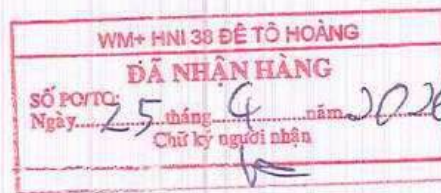 WM+ HNI 38 ĐÊ TÔ HOÀNG
ĐÃ NHẬN HÀNG
SỐ PO/TO:
Ngày 25 tháng 4 năm 2026
Chữ ký người nhận